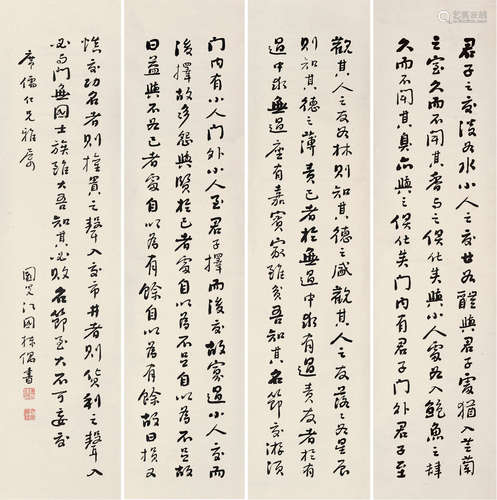 君子之交淡如水小人之交甘如醴與君子處猶入芝蘭
之室久而不聞其香與之俱化矣與小人處如入鮑魚之肆
久而不聞其臭亦與之俱化矣門內有君子門外君子至
觀其人之友如林則知其德之盛觀其人之友落落如星辰
則知其德之薄責己者於無過中求有過責友者於有
過中求無過座有嘉賓家雖貧吾知其名節交游須
門內有小人門外小人至君子擇而後交故寡過小人交而
後擇故多怨與賢於己者處自以為不足自以為不足故
日益與不如己者處自以為有餘自以為有餘故日損又
慎交功名者則權貴之聲入交市井者則貨利之聲入
門無國士族雖大吾知其必敗名節至大不可妄交
席儒仁兄雅屬
江國棟偶書